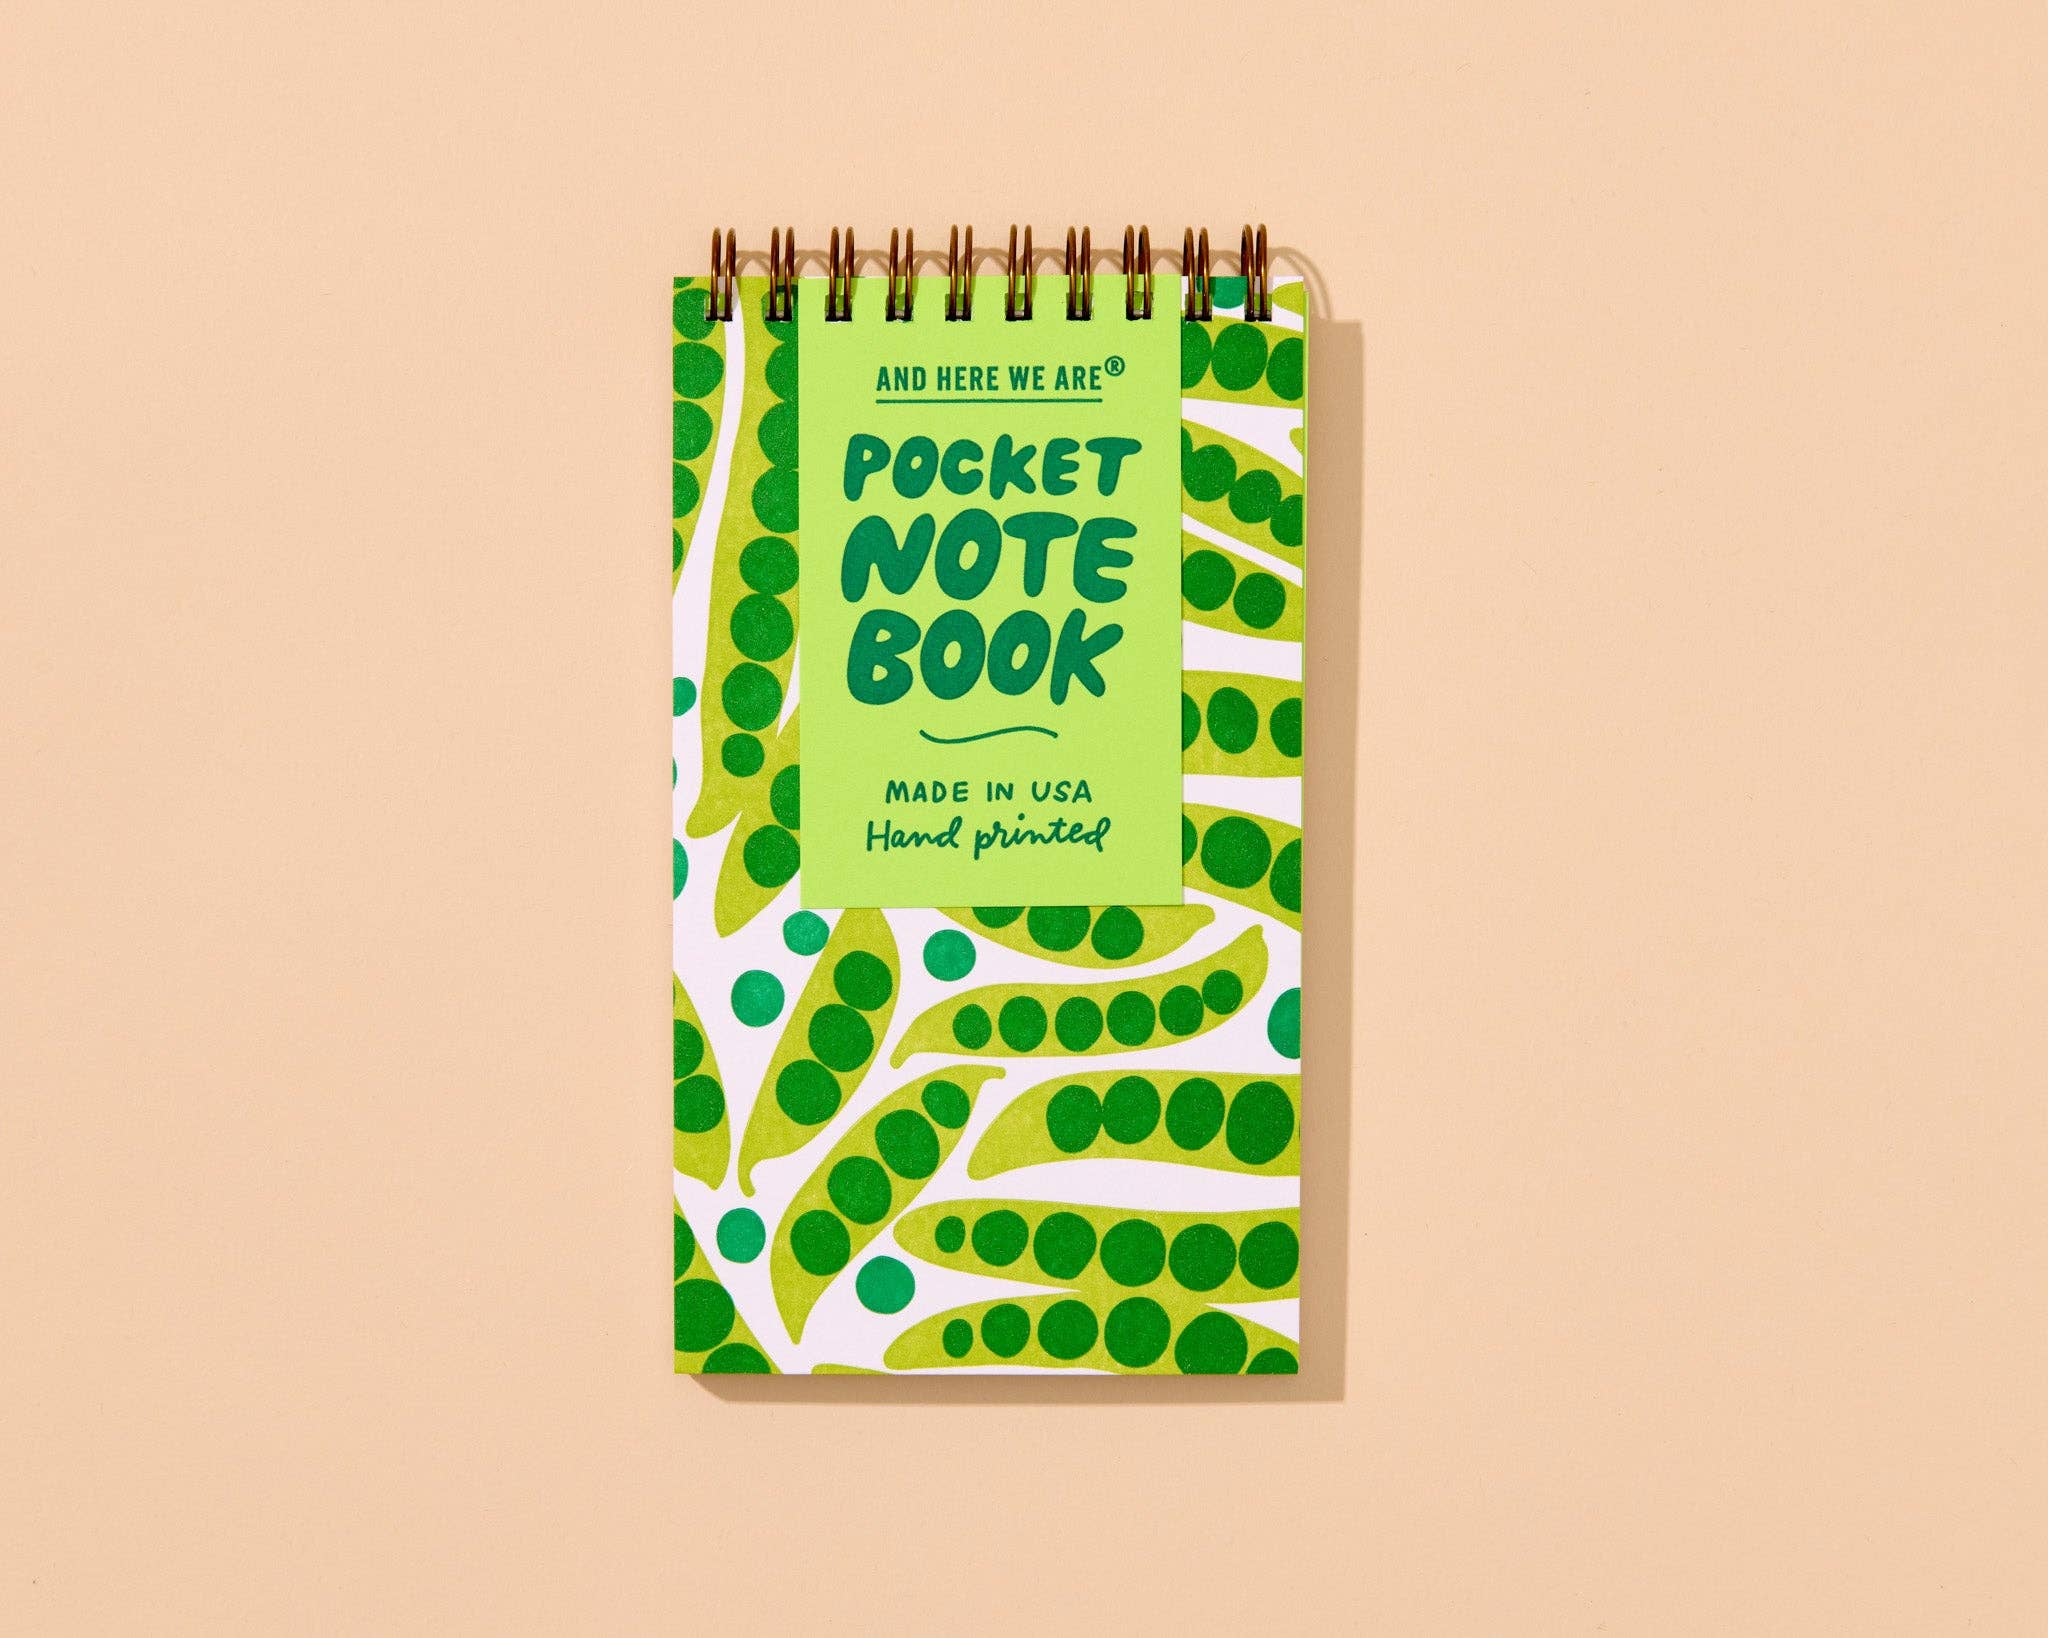 AND HERE WE ARE®
POCKET
NOTE
BOOK
MADE IN USA
Hand printed